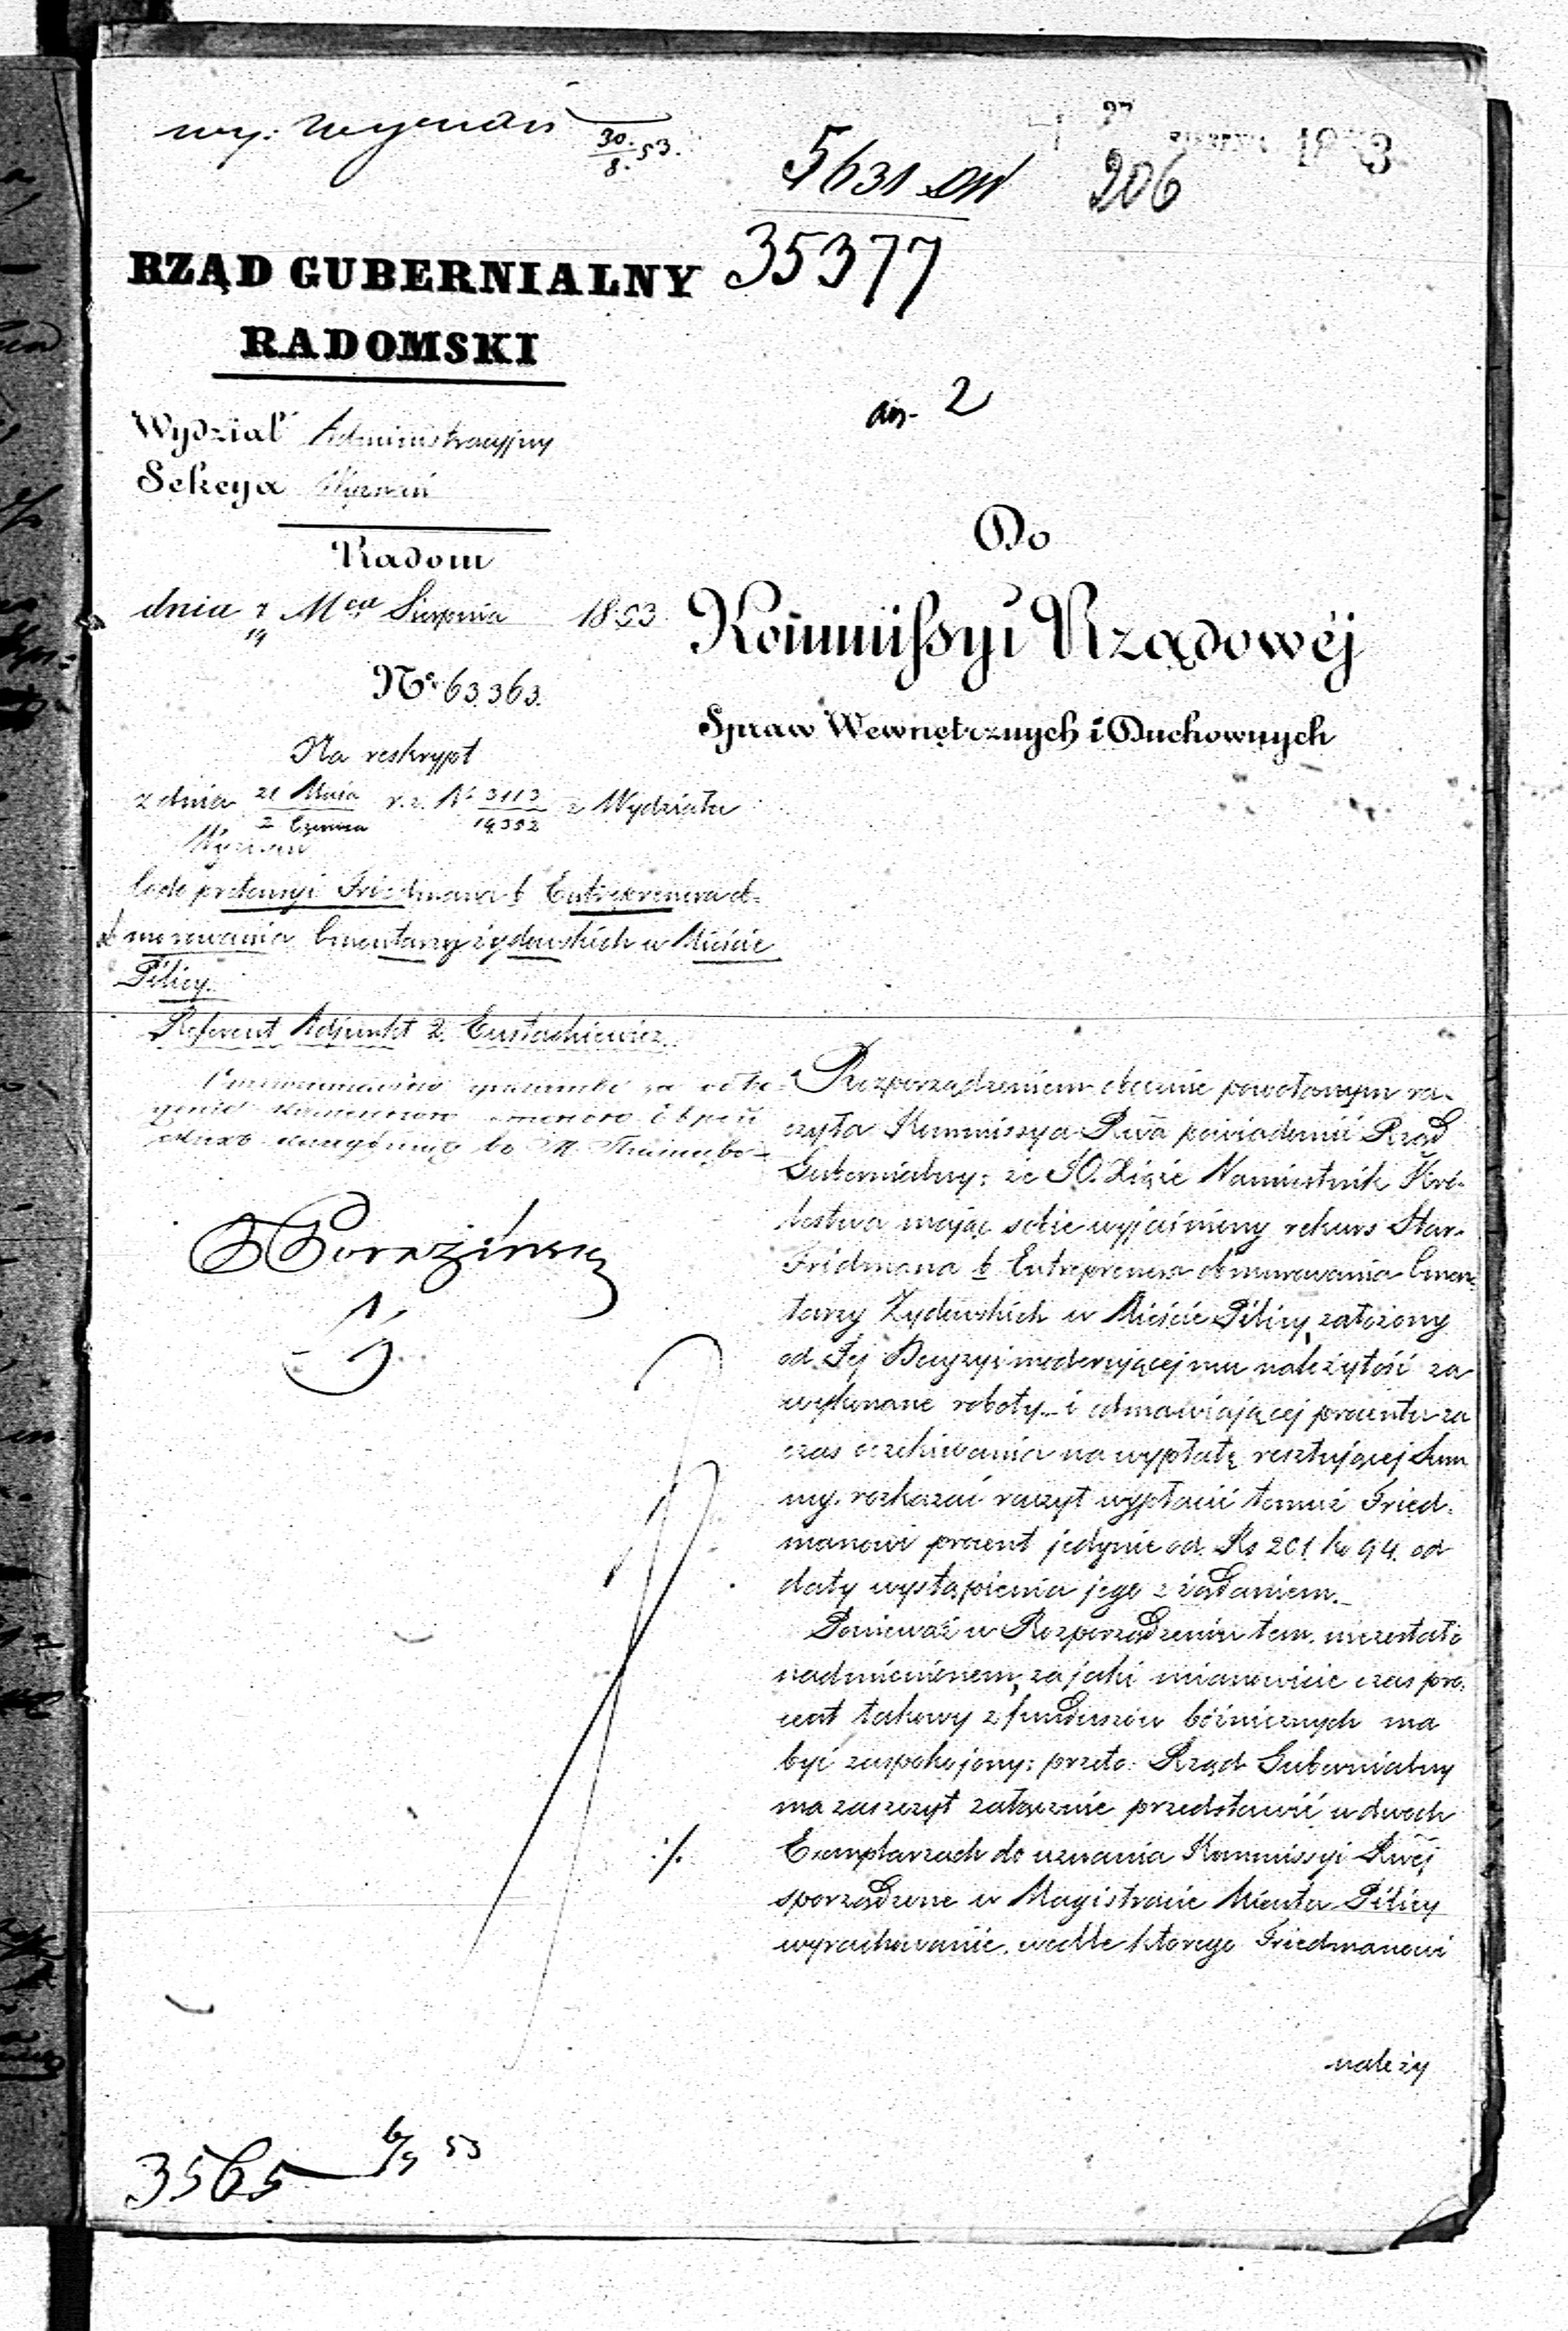 wy: Wyznań 30/8. 53.
5631 DW
35377
206
1853
RZĄD GUBERNIALNY
RADOMSKI
an. 2
Wydział Administracyjny
Sekcya Wyznań
Radom
dnia 7/19 Mca Sierpnia 1853
Do
Kommissyi Rządowéj
Spraw Wewnętrznych i Duchownych
No. 63363.
Na reskrypt
z dnia 21 Maja / 2 Czerwca r. z. No 3113/19352 z Wydziału
Wyznań
Co do pretensyi Friedmana b. Entreprenera ob-
murowania Cmentarzy żydowskich w Mieście
Pilicy.
Referent Adjunkt 2. Eustachiewicz
Rozporządzeniem obecnie powołanym ra-
czyła Kommissya Rwa powiadomić Rząd
Gubernialny: że JO. Xiąże Namiestnik Kró-
lestwa mając sobie wyjaśniony rekurs Star.
Fridmana b. Entreprenera obmurowania Cmen-
tarzy Żydowskich w Mieście Pilicy, założony
od Jej Decyzyi moderującej mu należytość za
wykonane roboty i odmawiającej procentu za
czas oczekiwania na wypłatę resztującej Sum
my, rozkazać raczył wypłacić temuż Fried-
manowi procent jedynie od Rs 201 ko 94. od
daty wystąpienia jego z żądaniem.
Ponieważ w Rozporządzeniu tem. niezostało
nadmienionem, za jaki mianowicie czas pro-
cent takowy z funduszów bóżnicznych ma
być zaspokojony: przeto Rząd Gubernialny
ma zaszczyt załącznie przedstawić w dwóch
./. Exemplarzach do uznania Kommissyi Rwej
sporządzone w Magistracie Miasta Pilicy
wyrachowanie. wedle którego Friedmanowi
należy
3565 6/9 53